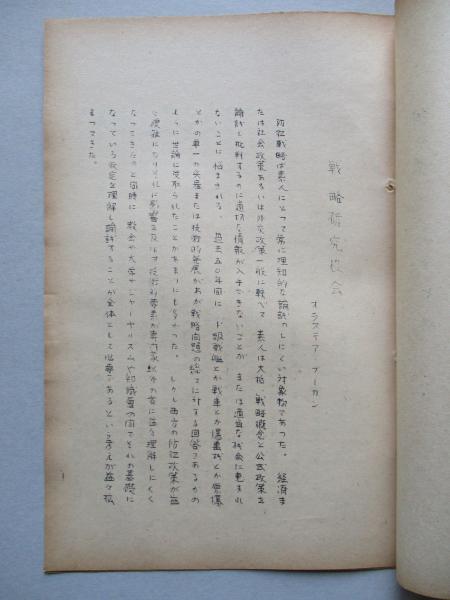 戦略研究協会
オラステアー・ブーカン
防衛戦略は素人にとって常に理知的な論説のしにくい対象物であった。 経済ま
たは社会政策あるいは外交政策一般に較べて 素人は大抵 戦略概念と公式政策を、
論説し批判するのに適切な情報が入手できないことが または適当な機会に恵まれ
ないことに悩まされる。 過去五〇年間に ド級戦艦とか戦車とか爆撃機とか原爆
とかの単一の兵器または技術的発展があが戦略問題の総てに対する回答であるかの
ように世論に受取られたことがあまりにも多かった。 しかし西方の防衛政策が益
々複雑になりそれに影響を及ぼす技術的要素が専門家以外の者に益々理解しにくく
なってきたのと同時に 教会や大学やジャーナリズムや知識層の間でそれの基礎に
なっている仮定を理解し論討することが全体として必要であるという考えが益々強
まってきた。